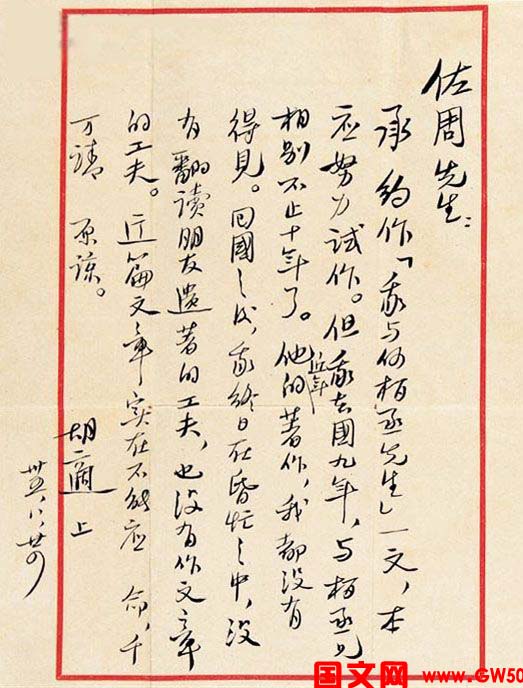 佐周先生：
承 約作「我与何柏丞先生」一文，本
应努力試作。但我去國九年，与柏丞兄
相别不止十年了。他的近年著作，我都没有
得見。回國之後，我終日在昏忙之中，没
有翻读朋友遺著的工夫，也没有作文章
的工夫。这篇文章实在不能应 命，千
万請 原諒。
胡適 上
国文网 www.GW50